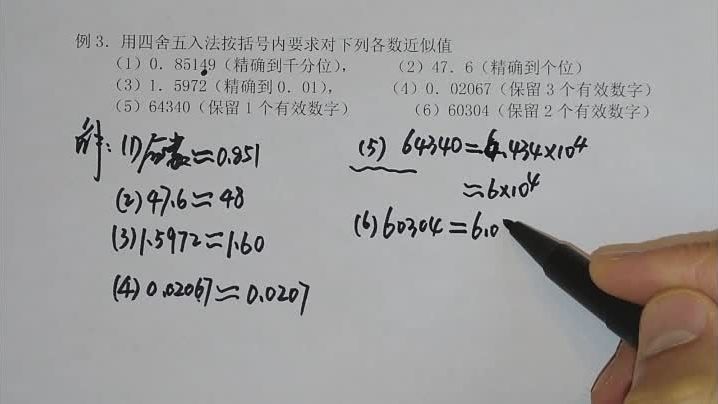 例3．用四舍五入法按括号内要求对下列各数近似值
（1）0．85149（精确到千分位），　（2）47．6（精确到个位）
（3）1．5972（精确到0．01），　（4）0．02067（保留3个有效数字）
（5）64340（保留1个有效数字）　（6）60304（保留2个有效数字）
解:(1)原数≈0.851
(2)47.6≈48
(3)1.5972≈1.60
(4)0.02067≈0.0207
(5) 64340=6.434×10⁴
≈6×10⁴
(6)60304=6.0